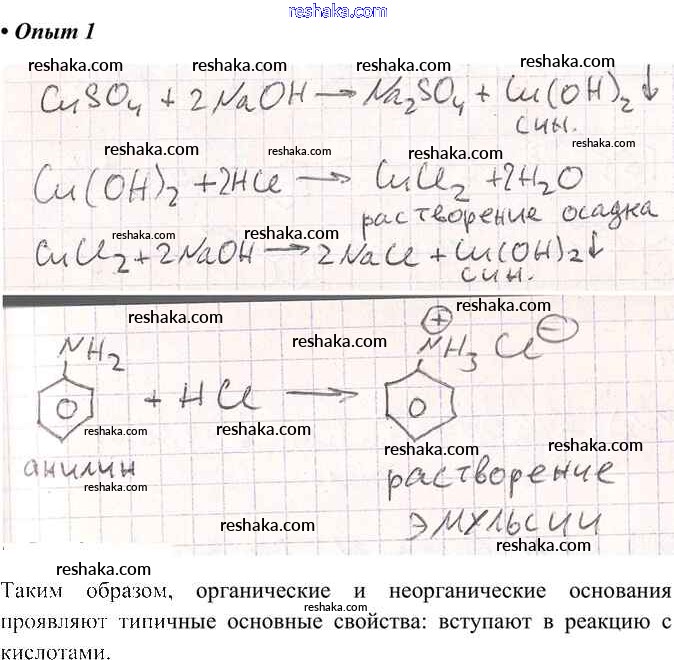 reshaka.com
• Опыт 1
reshaka.com reshaka.com reshaka.com
CuSO₄ + 2NaOH → Na₂SO₄ + Cu(OH)₂↓
син.
reshaka.com reshaka.com reshaka.com
Cu(OH)₂ + 2HCl → CuCl₂ + 2H₂O
reshaka.com reshaka.com
растворение осадка
reshaka.com reshaka.com
CuCl₂ + 2NaOH → 2NaCl + Cu(OH)₂↓
син.
reshaka.com reshaka.com
reshaka.com reshaka.com
NH₂ + HCl → NH₃ Cl
+ −
reshaka.com reshaka.com
reshaka.com reshaka.com
анилин
reshaka.com reshaka.com
растворение
reshaka.com reshaka.com
эмульсии
reshaka.com reshaka.com
reshaka.com
Таким образом, органические и неорганические основания
reshaka.com
проявляют типичные основные свойства: вступают в реакцию с
кислотами.
reshaka.com